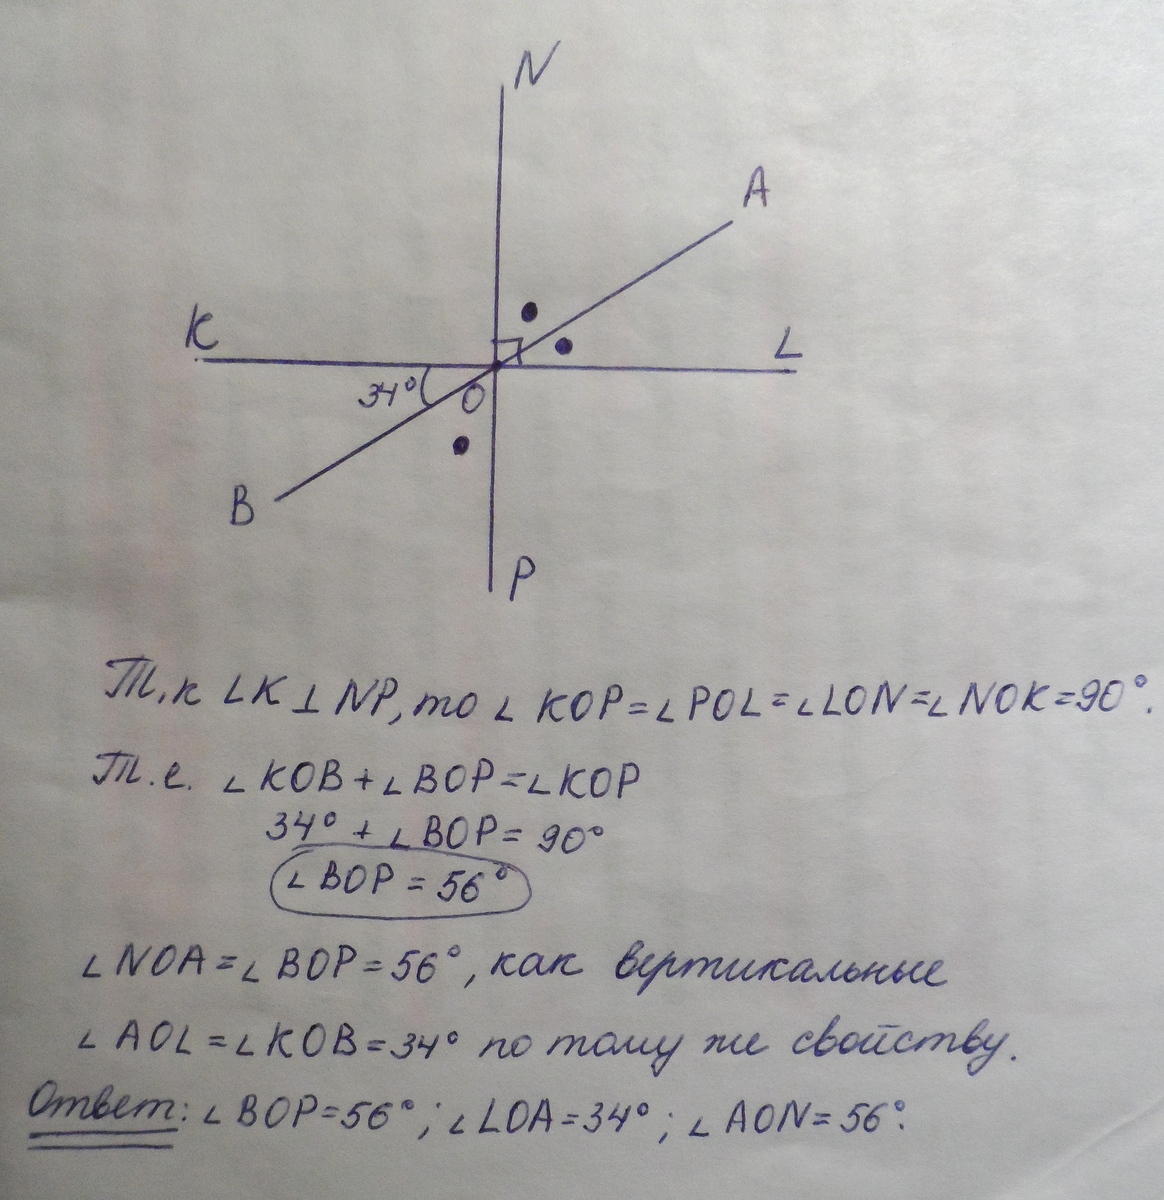 N
A
K
L
34°
O
B
P
Т.к LK ⊥ NP, то ∠ KOP = ∠ POL = ∠ LON = ∠ NOK = 90°.
Т.е. ∠ KOB + ∠ BOP = ∠ KOP
34° + ∠ BOP = 90°
∠ BOP = 56°
∠ NOA = ∠ BOP = 56°, как вертикальные
∠ AOL = ∠ KOB = 34° по тому же свойству.
Ответ: ∠ BOP = 56°; ∠ LOA = 34°; ∠ AON = 56°.